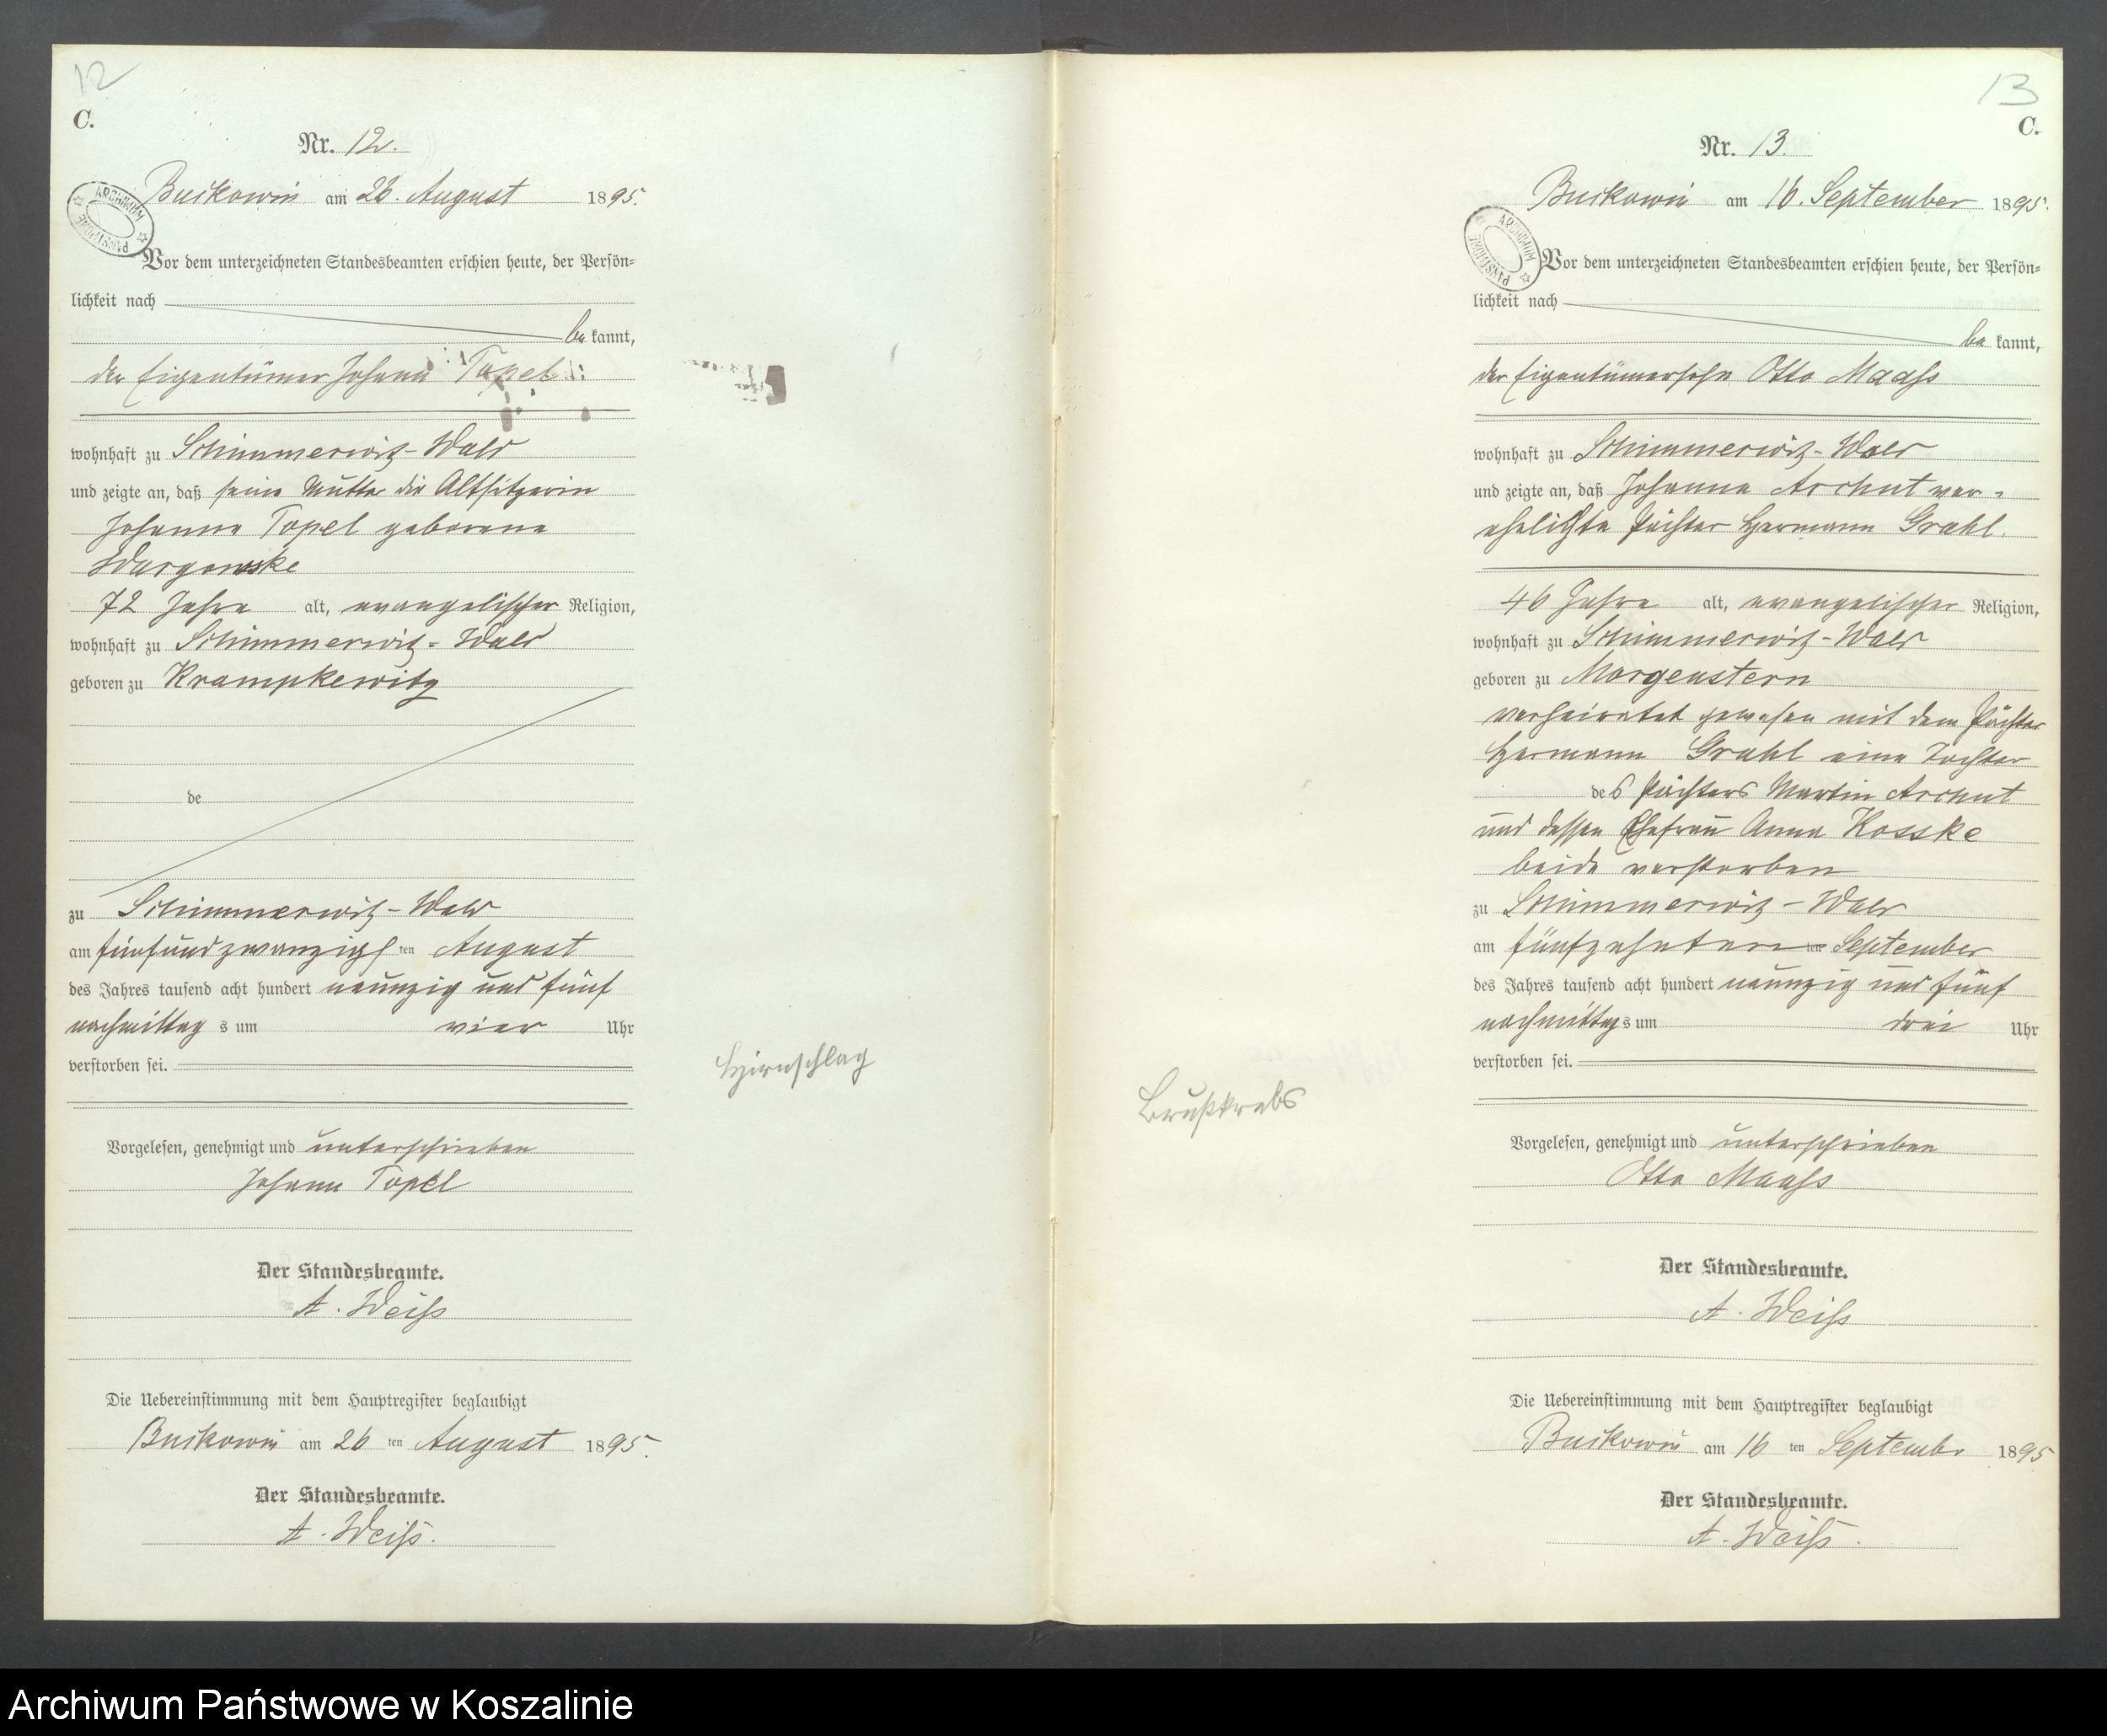 12
C.
Nr. 12.
Buckowin am 26. August 1895.
ARCHIWUM PAŃSTWOWE
Vor dem unterzeichneten Standesbeamten erschien heute, der Persön-
lichkeit nach
be kannt,
der Eigentümer Johann Topel
wohnhaft zu Schimmerwitz-Wald
und zeigte an, daß seine Mutter die Altsitzerin
Johanna Topel geborene
72 Jahre alt, evangelischer Religion,
wohnhaft zu Schimmerwitz-Wald
geboren zu Krampkewitz
de
zu Schimmerwitz-Wald
am fünfundzwanzigsten August
des Jahres tausend acht hundert neunzig und fünf
nachmittags um vier Uhr
verstorben sei.
Hirnschlag
Vorgelesen, genehmigt und unterschrieben
Johann Topel
Der Standesbeamte.
A. Weiß
Die Uebereinstimmung mit dem Hauptregister beglaubigt
Buckowin am 26 ten August 1895.
Der Standesbeamte.
A. Weiß.
13
C.
Nr. 13.
Buckowin am 16. September 1895.
ARCHIWUM PAŃSTWOWE
Vor dem unterzeichneten Standesbeamten erschien heute, der Persön-
lichkeit nach
be kannt,
der Eigentümersohn Otto Maaß
wohnhaft zu Schimmerwitz-Wald
und zeigte an, daß Johanna Archut ver-
ehelichte Pächter Hermann Grahl.
46 Jahre alt, evangelischer Religion,
wohnhaft zu Schimmerwitz-Wald
geboren zu Morgenstern
verheiratet gewesen mit dem Pächter
Hermann Grahl eine Tochter
des Pächters Martin Archut
und dessen Ehefrau Anna Kosske
beide verstorben
zu Schimmerwitz-Wald
am fünfzehnten ten September
des Jahres tausend acht hundert neunzig und fünf
nachmittags um drei Uhr
verstorben sei.
Brustkrebs
Vorgelesen, genehmigt und unterschrieben
Otto Maaß
Der Standesbeamte.
A. Weiß
Die Uebereinstimmung mit dem Hauptregister beglaubigt
Buckowin am 16 ten Septembr 1895
Der Standesbeamte.
A. Weiß.
Archiwum Państwowe w Koszalinie